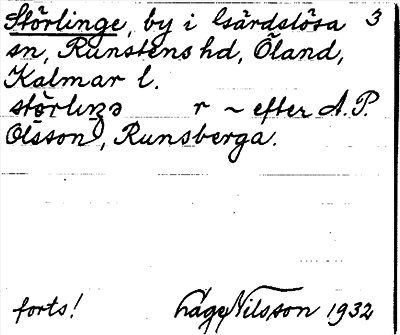 Störlinge, by i Gärdslösa 3
sn, Runstens hd, Öland,
Kalmar l.
r ~ efter A.P.
Olsson, Runsberga.
forts! Låge Nilsson 1932